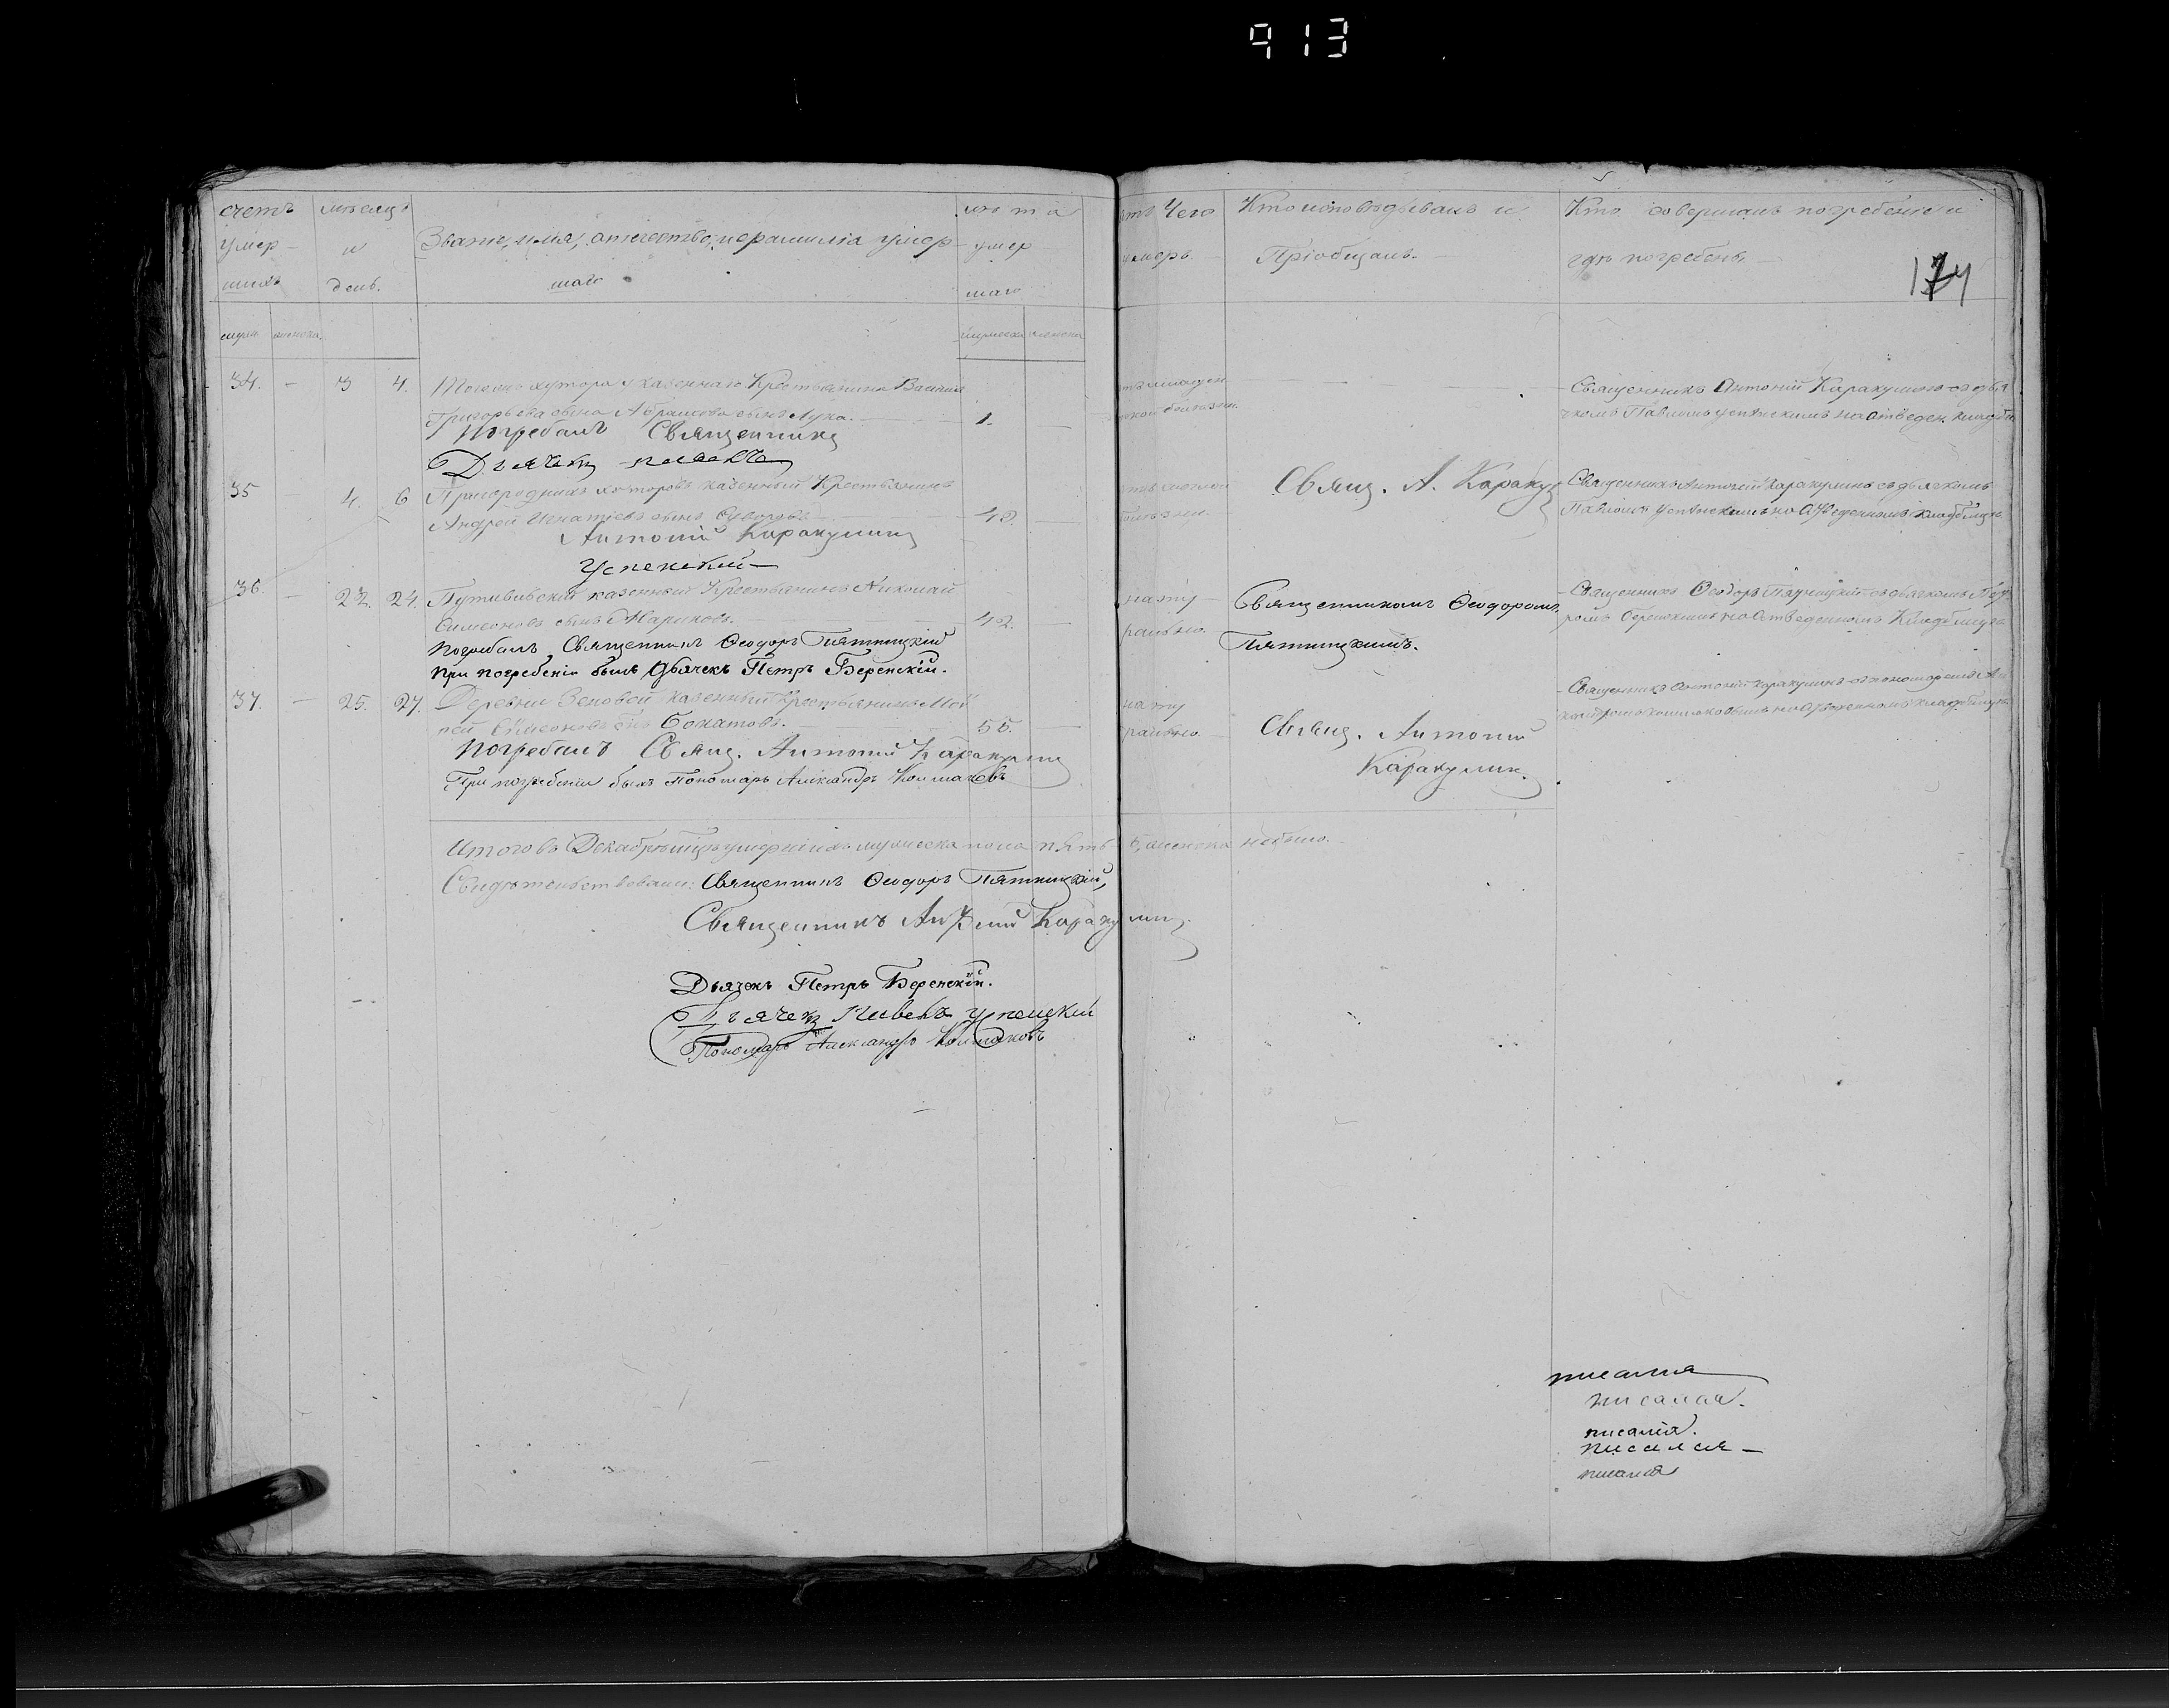 913
174
счетъ
умер-
шихъ
мѣсяцъ
и
день.
Званіе, имя, отечество, и фамилія умер-
шаго
лѣта
умер
шаго
отъ Чего
умеръ.
Кто исповѣдывалъ и
Пріобщалъ.
Кто совершалъ погребеніе и
гдѣ погребенъ.
34. - 3 4. хутора казеннаго Крестьянина Василия
Григорьева сына Абрамова сынъ Лука. 1.
Погребалъ Священникъ
Дьячекъ Павелъ
Священникъ Антоній Каракулинъ съ дья
чкомъ Павломъ Успенскимъ на отведен. кладби
35 4. 6 Пригородныхъ хуторовъ казенный Крестьянинъ
Андрей Игнатіевъ сынъ 42.
Антоній Каракулинъ
Успенский
болѣзни.
Свящ. А. Каракул
Священникъ Антоній Каракулинъ съ дьячкомъ
Павломъ Успенскимъ на отведенномъ кладбищѣ
36. - 22. 24. Путивльскій казенный Крестьянинъ Николай
Симеоновъ сынъ Мариковъ. 42.
погребалъ Священникъ Ѳеодоръ Пятницкій
при погребеніи былъ Дьячекъ Петръ Беренскій.
нату
рально.
Священникомъ Ѳеодоромъ
Пятницкимъ.
Священникъ Ѳеодоръ Пятницкій съ дьячкомъ Пет
ромъ Беренскимъ на отведенномъ Кладбищѣ
37. - 25. 27. Деревни Зеновой казенный Крестьянинъ
Симеоновъ сынъ 55.
Погребалъ Свящ. Антоній Каракулин
При погребеніи былъ Пономарь Александръ Колмаковъ
нату
рально.
Свящ. Антоній
Каракулин.
Священникъ Антоній Каракулинъ съ пономаремъ Але
ксандромъ Колмаковымъ на отведенномъ кладбищѣ
Итого въ Декабрѣ мцѣ умершихъ мужеска пола пять а женска небыло.
Свидѣтельствовали: Священникъ Ѳеодоръ Пятницкій,
Священникъ Антоній Каракулин
Дьячекъ Петръ Беренскій.
Дьячекъ Павелъ Успенскій
Пономарь Александръ Колмаковъ
писалия
писалия.
писалія.
писалия
писалия